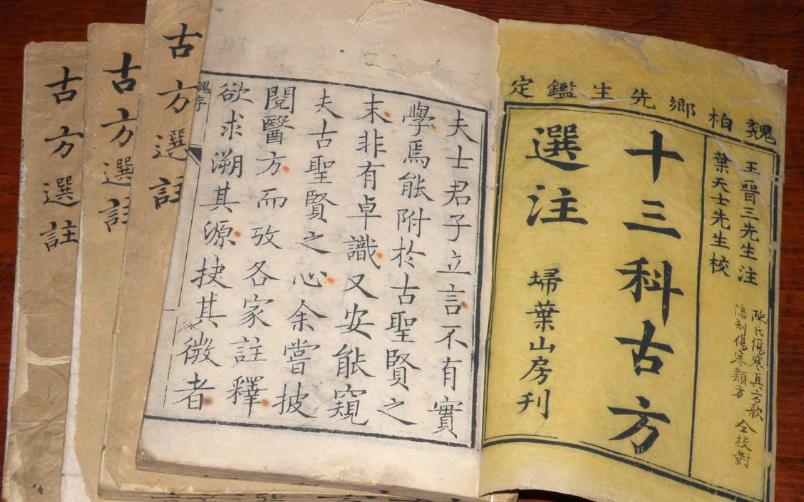 魏柏鄉先生鑑定
王晉三先生注
葉天士先生校
十三科古方
選注
掃葉山房刊
陳氏傷寒真方歌
傷寒類方
仝校對
夫士君子立言不有實
學焉能附於古聖賢之
末非有卓識又安能窺
夫古聖賢之心余嘗披
閱醫方而攷各家註釋
欲求溯其源抉其微者
魏序
古方選註
古方選註
古方選註